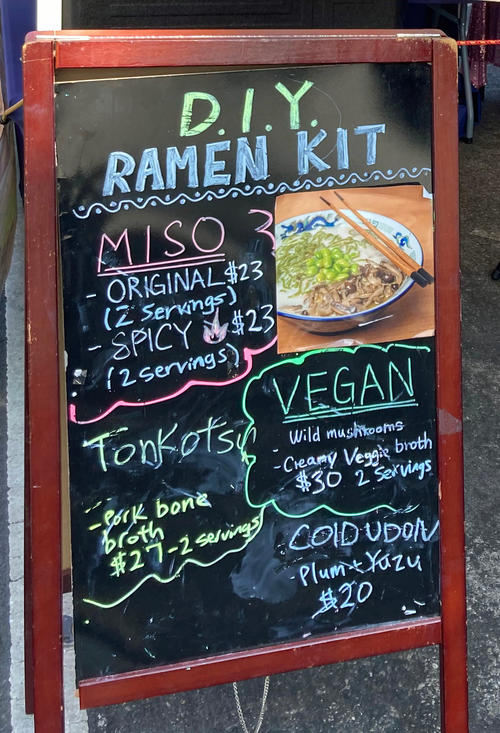 D.I.Y.
RAMEN KIT
MISO
- ORIGINAL $23
(2 Servings)
- SPICY $23
(2 servings)
VEGAN
Wild mushrooms
- Creamy Veggie broth
$30 2 Servings
Tonkotsu
- Pork bone
broth
$27-2 servings
COLD UDON
- Plum + Yuzu
$20